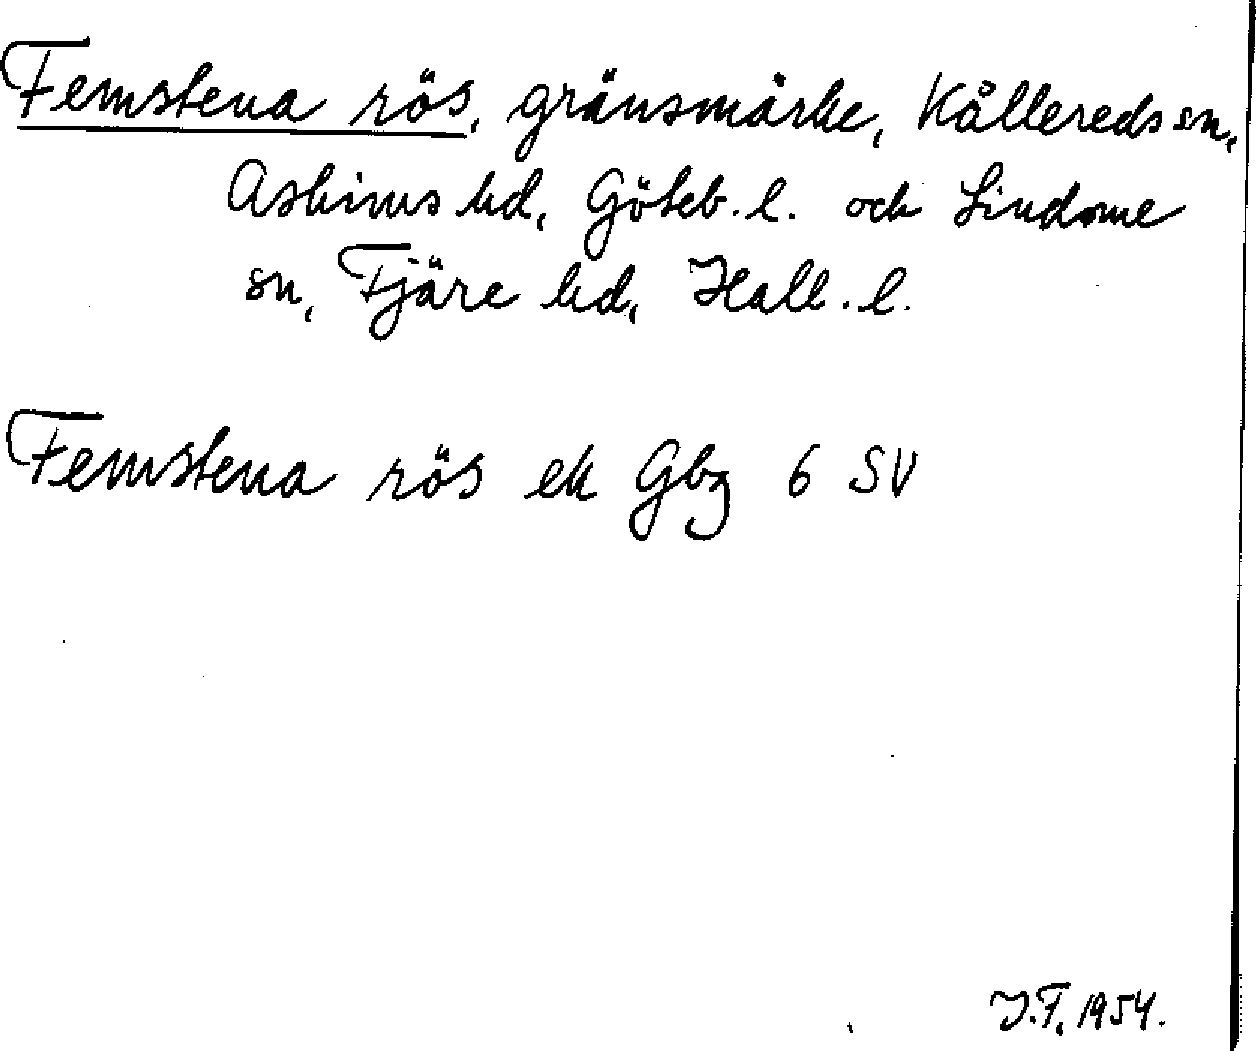 Femstena rös, gränsmärke, Kållereds sn,
Askims hd, Göteb. l. och Lindome
sn, Fjäre hd, Hall. l.
Femstena rös ek Gbg 6 SV
J.F. 1954.